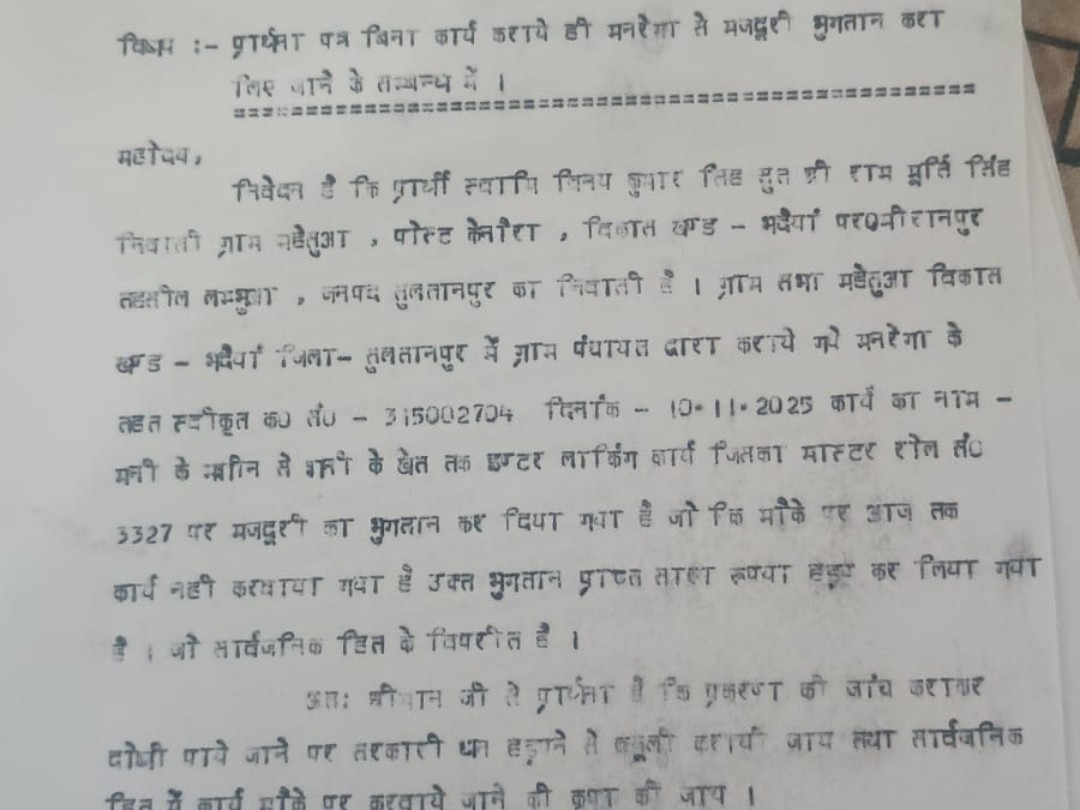 विषय :- प्रार्थना पत्र बिना कार्य कराये ही मनरेगा से मजदूरी भुगतान करा
लिए जाने के सम्बन्ध में ।
महोदय,
निवेदन है कि प्रार्थी स्वामि विनय कुमार सिंह सुत श्री राम मूर्ति सिंह
निवासी ग्राम महेतुआ , पोस्ट केनौरा , विकास खण्ड - भदैयां पर0मीरानपुर
तहसील लम्भुआ , जनपद सुलतानपुर का निवासी है । ग्राम सभा महेतुआ विकास
खण्ड - भदैयां जिला- सुलतानपुर में ग्राम पंचायत द्वारा कराये गये मनरेगा के
तहत स्वीकृत क0 सं0 - 315002704 दिनांक - 10.11.2025 कार्य का नाम -
मनी के मशीन से के खेत तक इण्टर लाकिंग कार्य जिसका मास्टर रोल सं0
3327 पर मजदूरी का भुगतान कर दिया गया है जो कि मौके पर आज तक
कार्य नही करवाया गया है उक्त भुगतान प्राप्त सारा रूपया हड़प कर लिया गया
है । जो सार्वजनिक हित के विपरीत है ।
अतः श्रीमान जी से प्रार्थना है कि प्रकरण की जांच कराकर
दोषी पाये जाने पर सरकारी धन हड़पने से वसूली करायी जाय तथा सार्वजनिक
हित में कार्य मौके पर करवाये जाने की कृपा की जाय ।